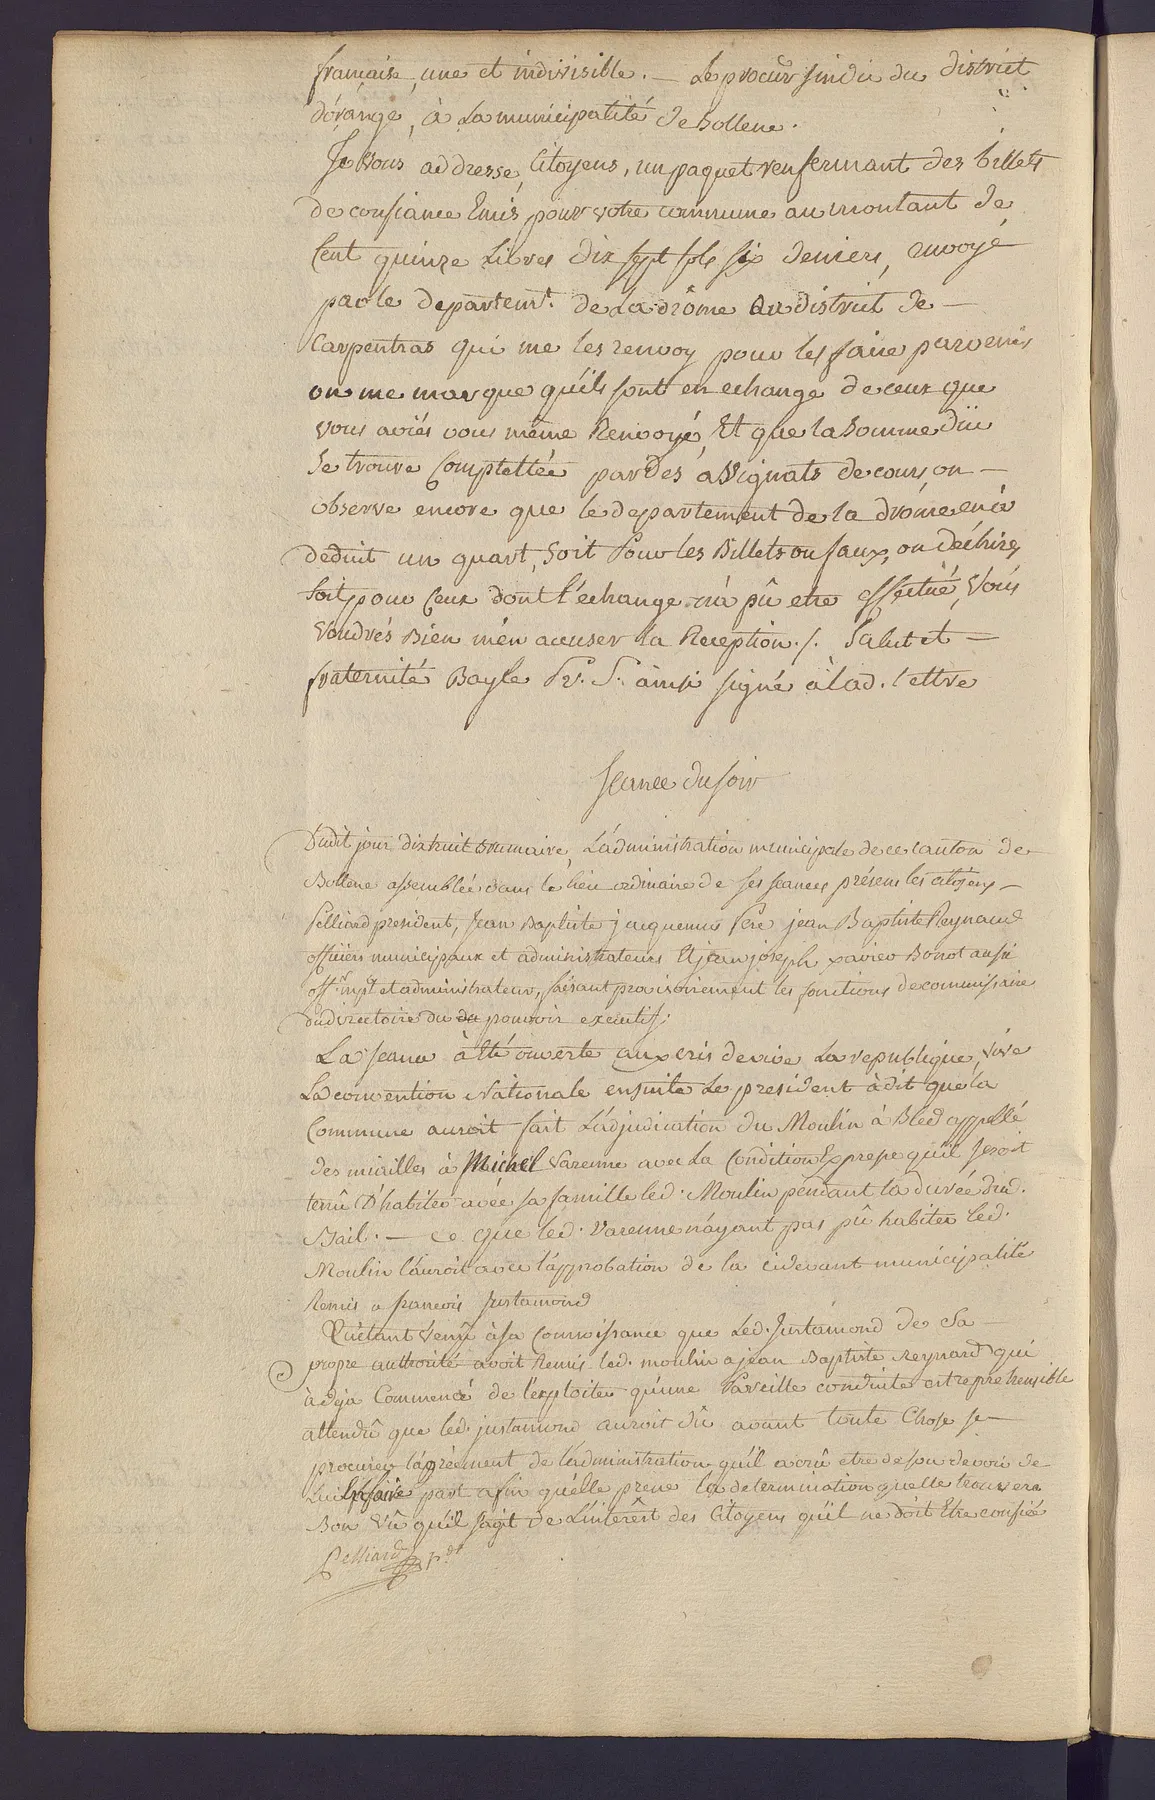 française, une et indivisible. — Le procur sindic du district
d'orange, à La municipalité de bollene.
Je vous addresse, Citoyens, un paquet renfermant des billets
de confiance Emis pour votre commune au montant de
Cent quinze Livres dix sept sols six deniers, envoyé
par le departemt. de La drôme au district de —
Carpentras qui me les renvoy pour les faire parvenir
on me marque qu'ils sont en echange de ceux que
vous aviés vous même Renvoyé, Et que la Somme düe
se trouve Complettée par des assignats de cours, on —
observe encore que le departement de la drôme en a
deduit un quart, soit Pour les Billets ou faux, ou déchirés,
soit pour Ceux dont l'echange n'a pû etre effectué, Vous
Voudrés Bien m'en accuser la Reception ./. Salut et —
fraternité Bayle Pr. S. ainsi signé à lad. lettre
Seance du soir
Dudit jour dixhuit brumaire, L'administration municipale de ce canton de
Bollene assemblée dans le lieu ordinaire de ses seances présens les citoyens —
Pelliard president, Jean Baptiste jacquemin Pere jean Baptiste Reynaud
officiers municipaux et administrateurs Et jean joseph xavier Bonot aussi
offr. mpl. et administrateur, faisant provisoirement les fonctions de commissaire
du directoire du du pouvoir executif;
La seance à été ouverte aux cris de vive La republique, vive
La convention Nationale ensuite Le president à dit que la
Commune auroit fait L'adjudication du Moulin à Bled appellé
des miailles à Michel Varenne avec La Condition Expresse qu'il seroit
tenû D'habiter avec sa famille led. Moulin pendant la durée dud.
Bail. — Ce que led. Varenne n'ayant pas pû habiter led.
Moulin l'auroit avec l'approbation de la cidevant municipalité
Remis a francois Justamond
Qu'etant venû à sa Connoissance que Led. Justamond de sa —
propre authorité avoit Remis led. moulin a jean Baptiste Reynard qui
à deja Commencé de l'exploiter qu'une Pareille conduite est reprehensible
attendû que led. justamond auroit dû avant toute Chose se —
procurer l'agréement de l'administration qu'il a crû etre de son devoir de
Lui faire part afin qu'elle prene la determination qu'elle trouvera
Bon Vû qu'il s'agit de L'interêt des Citoyens qu'il ne doit Etre confié
Pelliard pdt